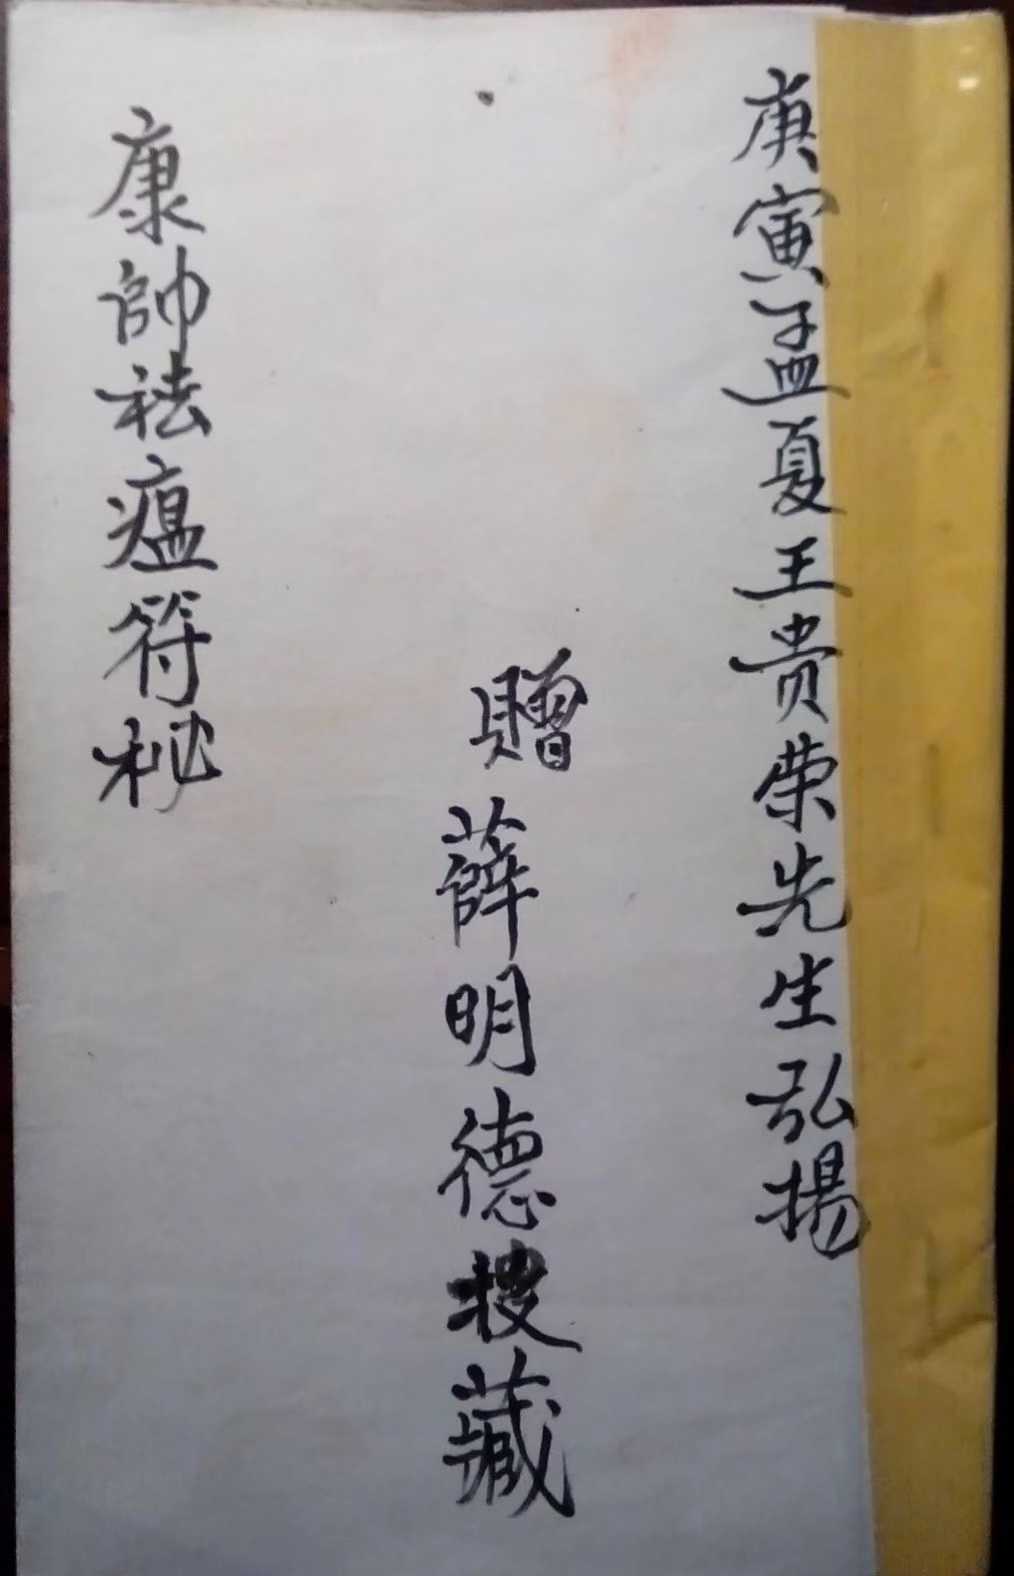 庚寅孟夏王贵荣先生弘揚
贈薛明德搜藏
康帥祛瘟符秘